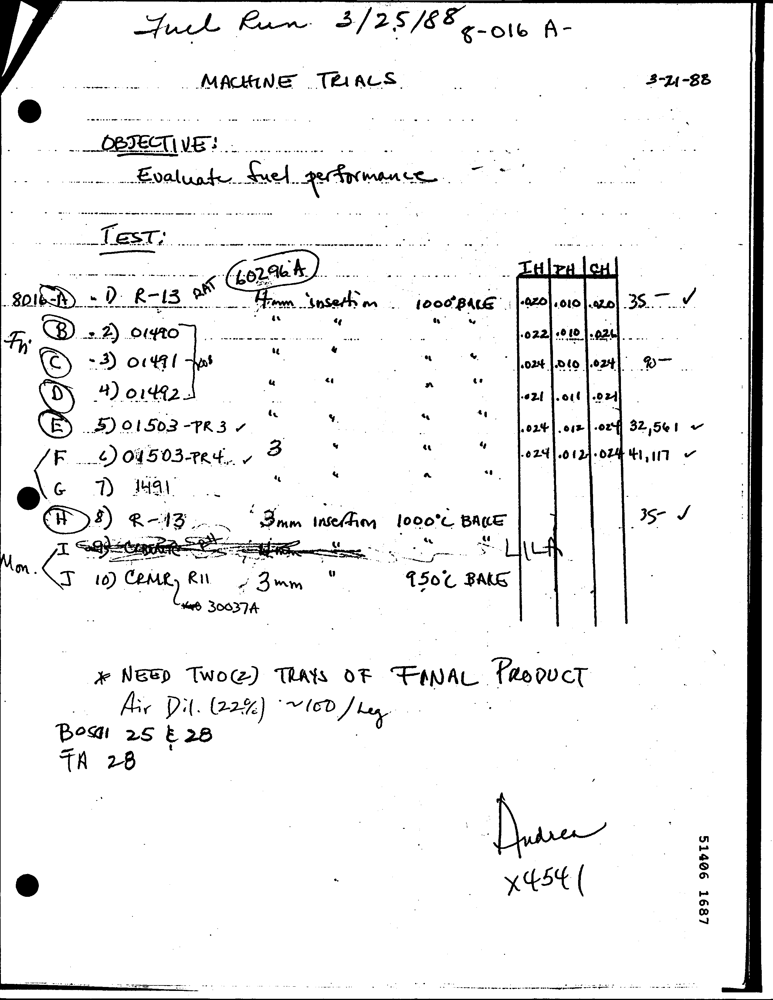 Fuel Run 3/25/88 8-016 A-
MACHINE TRIALS 3-21-88
OBJECTIVE:
Evaluate fuel performance
TEST:
60296A
IH PH CH
8016-A - 1) R-13 RAT 4mm insertion 1000° BAKE .020 .010 .020 35 - ✓
Fri. B - 2) 01490 " " " " .022 .010 .026
C - 3) 01491 " " " " .024 .010 .024 90 -
D 4) 01492 " " " " .021 .011 .021
E 5) 01503-PR3 ✓ " " " " .024 .012 .024 32,561 ✓
F 6) 01503-PR4 ✓ 3 " " " .024 .012 .024 41,117 ✓
G 7) 1491 " " " "
H 8) R-13 3mm insertion 1000°C BAKE 35- ✓
I 9) " " "
Mon. J 10) CRMR, R11 3mm " 950°C BAKE
30037A
* NEED TWO(2) TRAYS OF FINAL PRODUCT
Air Dil. (22%) ~100/Leg
BOSCH 25 & 28
FA 28
Andrea
x4541
51406 1687